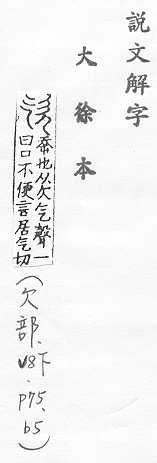 說文解字
大徐本
也从欠气聲一
曰口不便言居气切
(欠部、v8下.p75、b5)